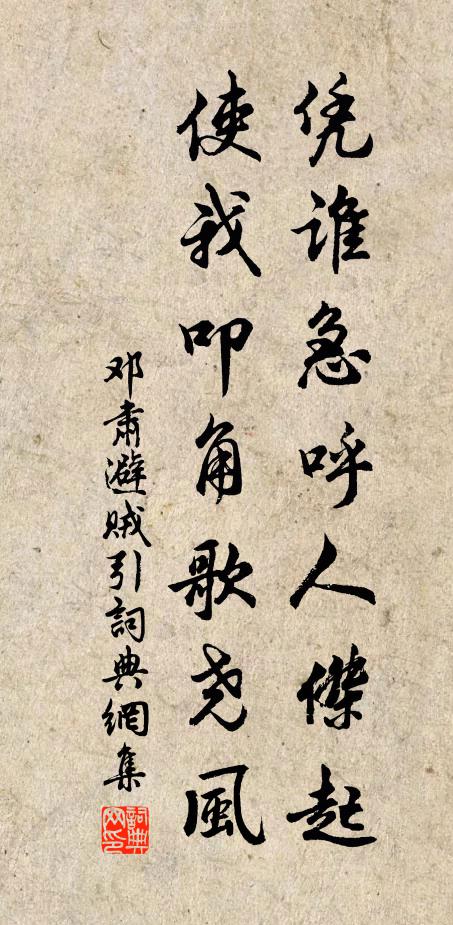 凭谁急呼人傑起
使我叩角歌尧風
邓肃避贼引詞典網集
詞典网印